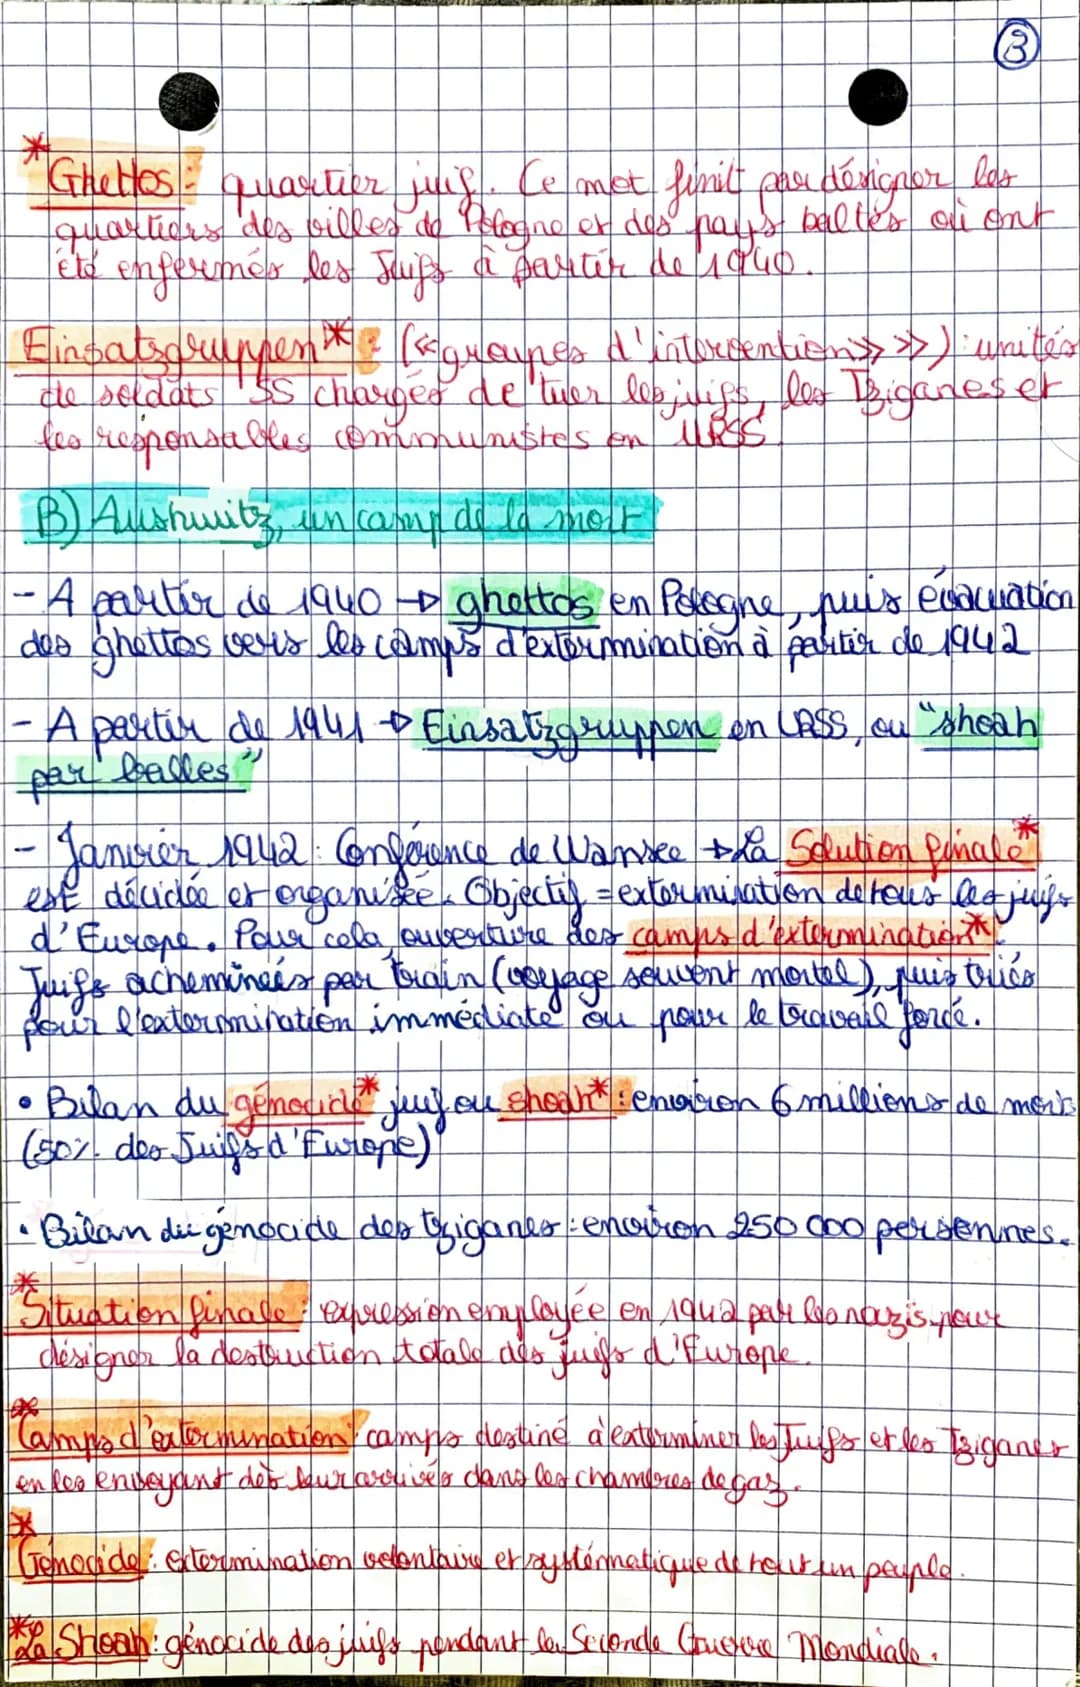 3
*Ghettos : quartier juif. Ce mot finit par désigner les
quartiers des villes de Pologne et des pays baltes où ont
été enfermés les Juifs à partir de 1940.
Einsatzgruppen* : (« groupes d'intervention» ») : unités
de soldats SS chargés de tuer les juifs, les Tziganes et
les responsables communistes en URSS.
B) Aushwitz, un camp de la mort
- A partir de 1940 → ghettos en Pologne, puis évacuation
des ghettos vers les camps d'extermination à partir de 1942
- A partir de 1941 → Einsatzgruppen en URSS, ou "shoah
par balles"
- Janvier 1942 : Conférence de Wansee → La Solution finale*
est décidée et organisée. Objectif = extermination de tous les juifs
d'Europe. Pour cela, ouverture des camps d'extermination*.
Juifs acheminés par train (voyage souvent mortel), puis triés
pour l'extermination immédiate ou pour le travail forcé.
• Bilan du génocide* juif ou shoah* : environ 6 millions de morts
(50% des Juifs d'Europe)
• Bilan du génocide des tziganes : environ 250 000 personnes.
*Situation finale : expression employée en 1942 par les nazis pour
désigner la destruction totale des juifs d'Europe.
*Camps d'extermination : camps destiné à exterminer les Juifs et les Tziganes
en les envoyant dès leur arrivés dans les chambres de gaz.
*Génocide : extermination volontaire et systématique de tout un peuple.
*La Shoah : génocide des juifs pendant la Seconde Guerre Mondiale.